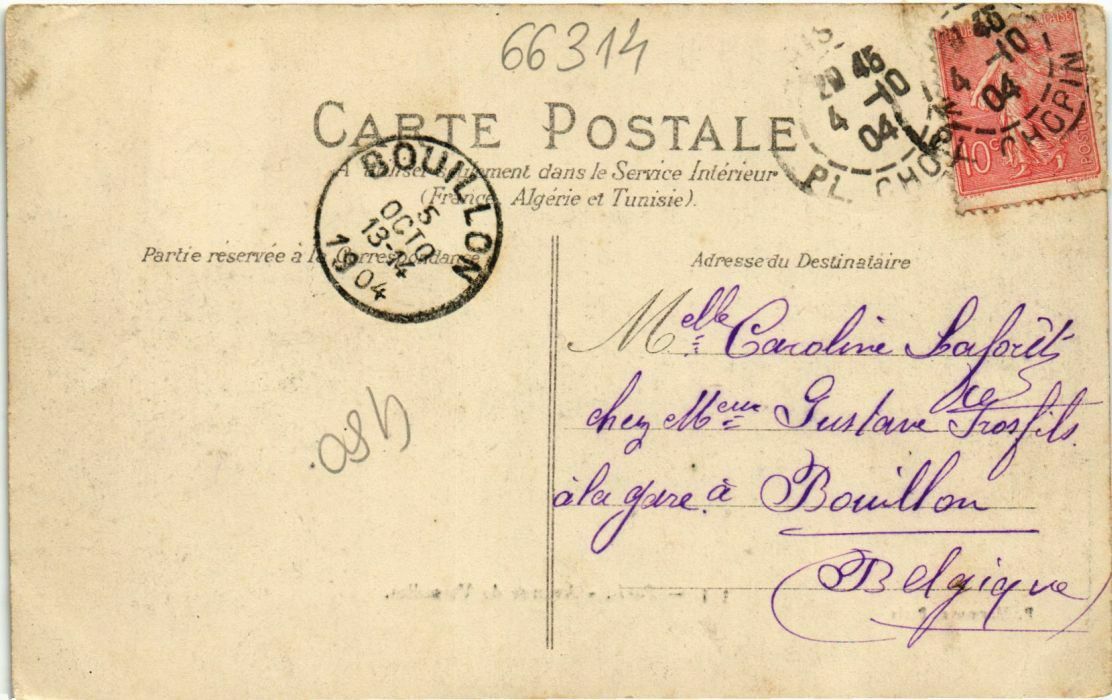 66314
CARTE POSTALE
A utiliser seulement dans le Service Intérieur
(France, Algérie et Tunisie).
Partie réservée à la Correspondance
Adresse du Destinataire
BOUILLON
5
OCTO
13-14
1904
45
4 -10
04
PL. CHOPIN
45
4 -10
04
PL. CHOPIN
10c
POSTES
Melle Caroline Laforêt
chez Meur Gustave Grosfils
à la gare à Bouillon
(Belgique)
480.